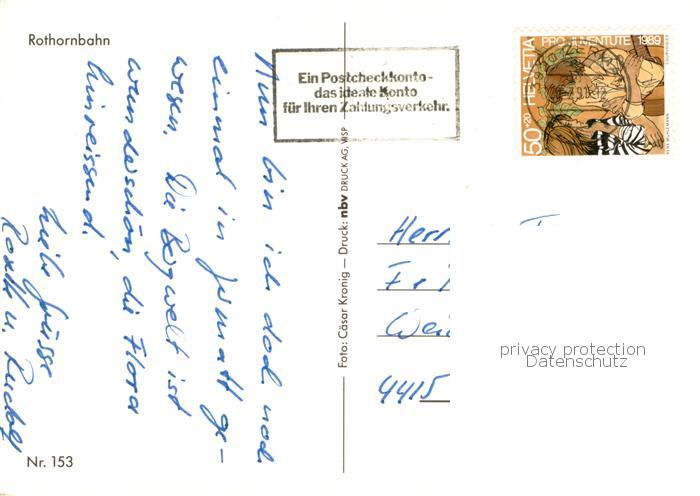 Rothornbahn
Nun bin ich doch noch
einmal in Zermatt ge-
wesen. Die Bergwelt ist
wunderschön, die Flora
hinreissend.
Liebe Grüsse
u. Rudolf
Nr. 153
Ein Postcheckkonto-
das ideale Konto
für Ihren Zahlungsverkehr.
Foto: Cäsar Kronig — Druck: nbv DRUCK AG, WSP
HELVETIA PRO JUVENTUTE 1989
50+20
Herr
4415
privacy protection
Datenschutz